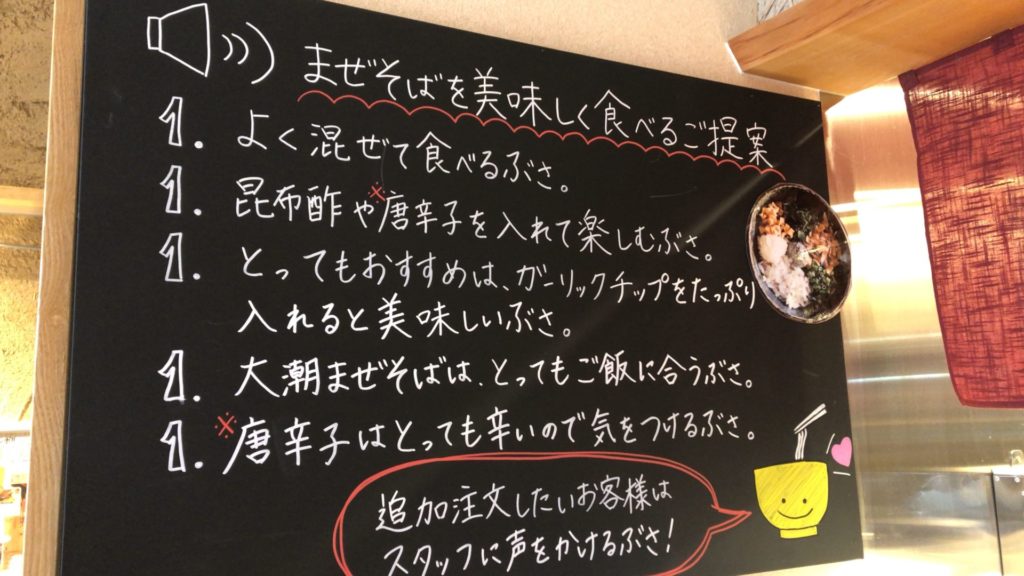 まぜそばを美味しく食べるご提案
1. よく混ぜて食べるぶさ。
1. 昆布酢や※唐辛子を入れて楽しむぶさ。
1. とってもおすすめは、ガーリックチップをたっぷり
入れると美味しいぶさ。
1. 大潮まぜそばは、とってもご飯に合うぶさ。
1. ※唐辛子はとっても辛いので気をつけるぶさ。
追加注文したいお客様は
スタッフに声をかけるぶさ!